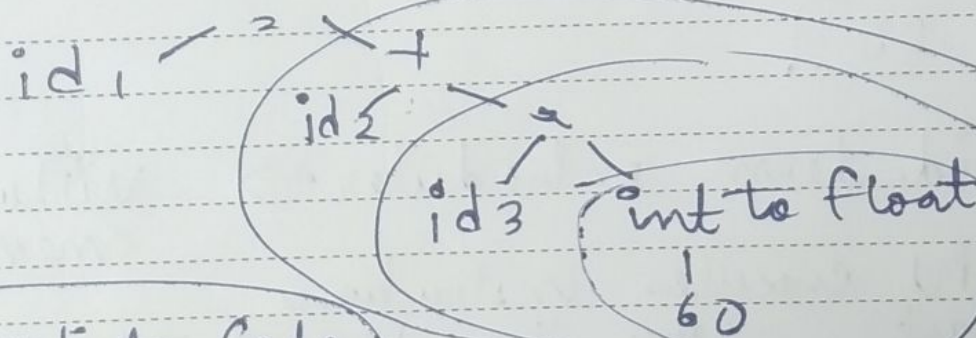 =
id1 +
id2 *
id3 int to float
60